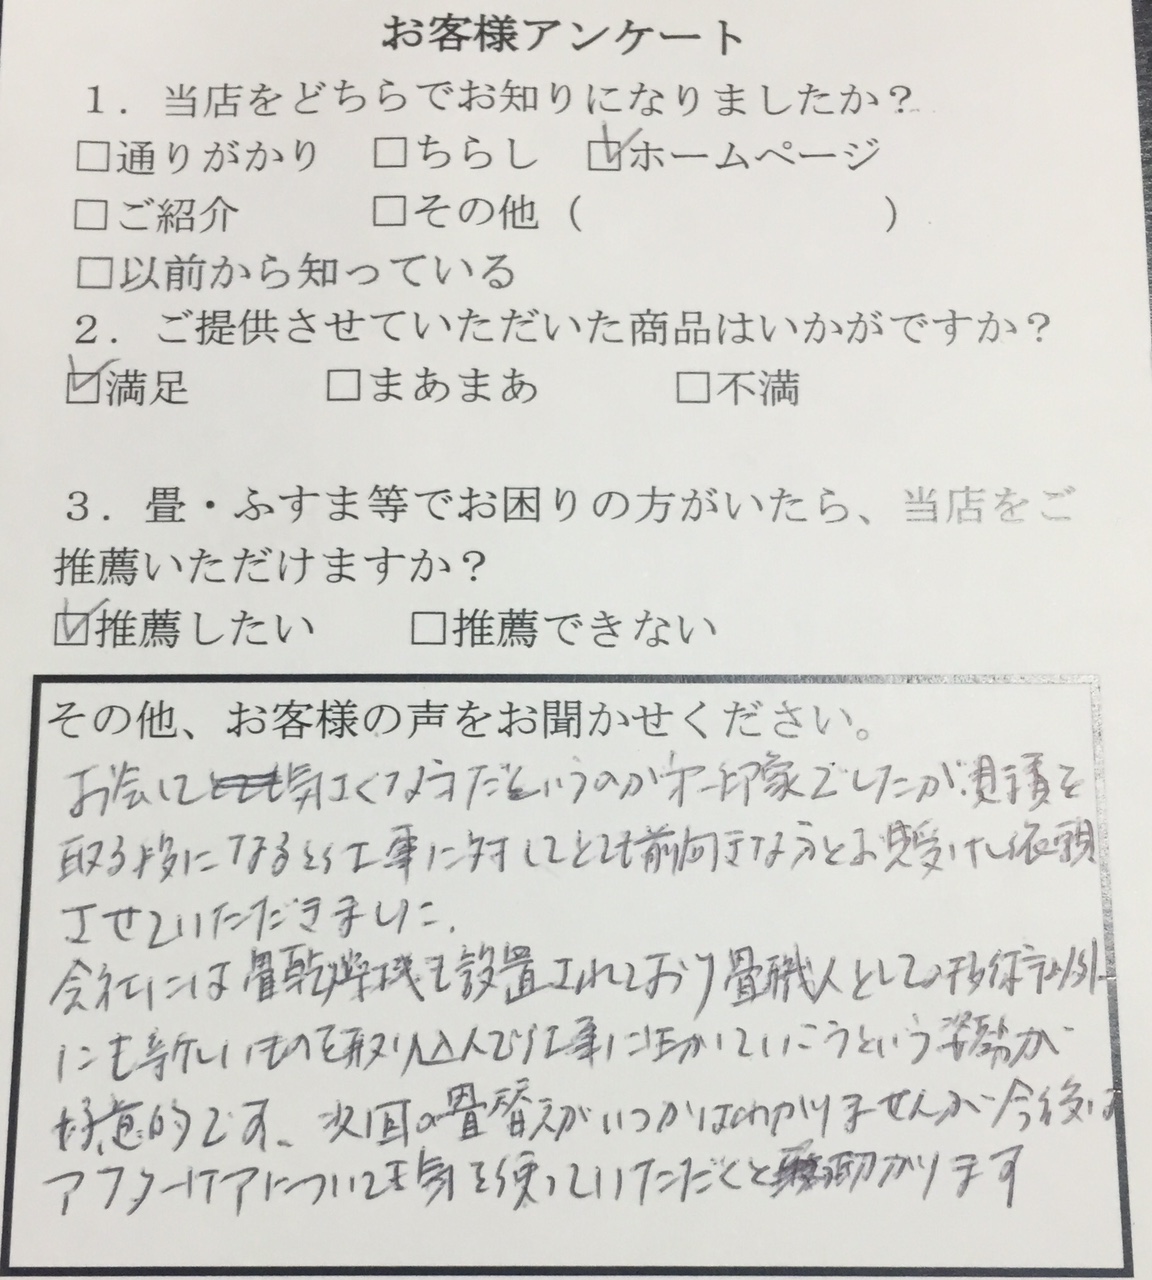 お客様アンケート
１．当店をどちらでお知りになりましたか？
□通りがかり　□ちらし　☑ホームページ
□ご紹介　□その他（　　　　　　　）
□以前から知っている
２．ご提供させていただいた商品はいかがですか？
☑満足　□まあまあ　□不満
３．畳・ふすま等でお困りの方がいたら、当店をご
推薦いただけますか？
☑推薦したい　□推薦できない
その他、お客様の声をお聞かせください。
お会いして気さくな方だというのが第一印象でしたが見積を
取る段になると仕事に対してとても前向きな方とお見受けし依頼
させていただきました.
会社には畳乾燥機も設置されており畳職人としての技術以外
にも新しいものを取り込んで仕事に活かしていこうという姿勢が
好意的です、次回の畳替えがいつかはわかりませんが今後は
アフターケアについても気を使っていただくと助かります